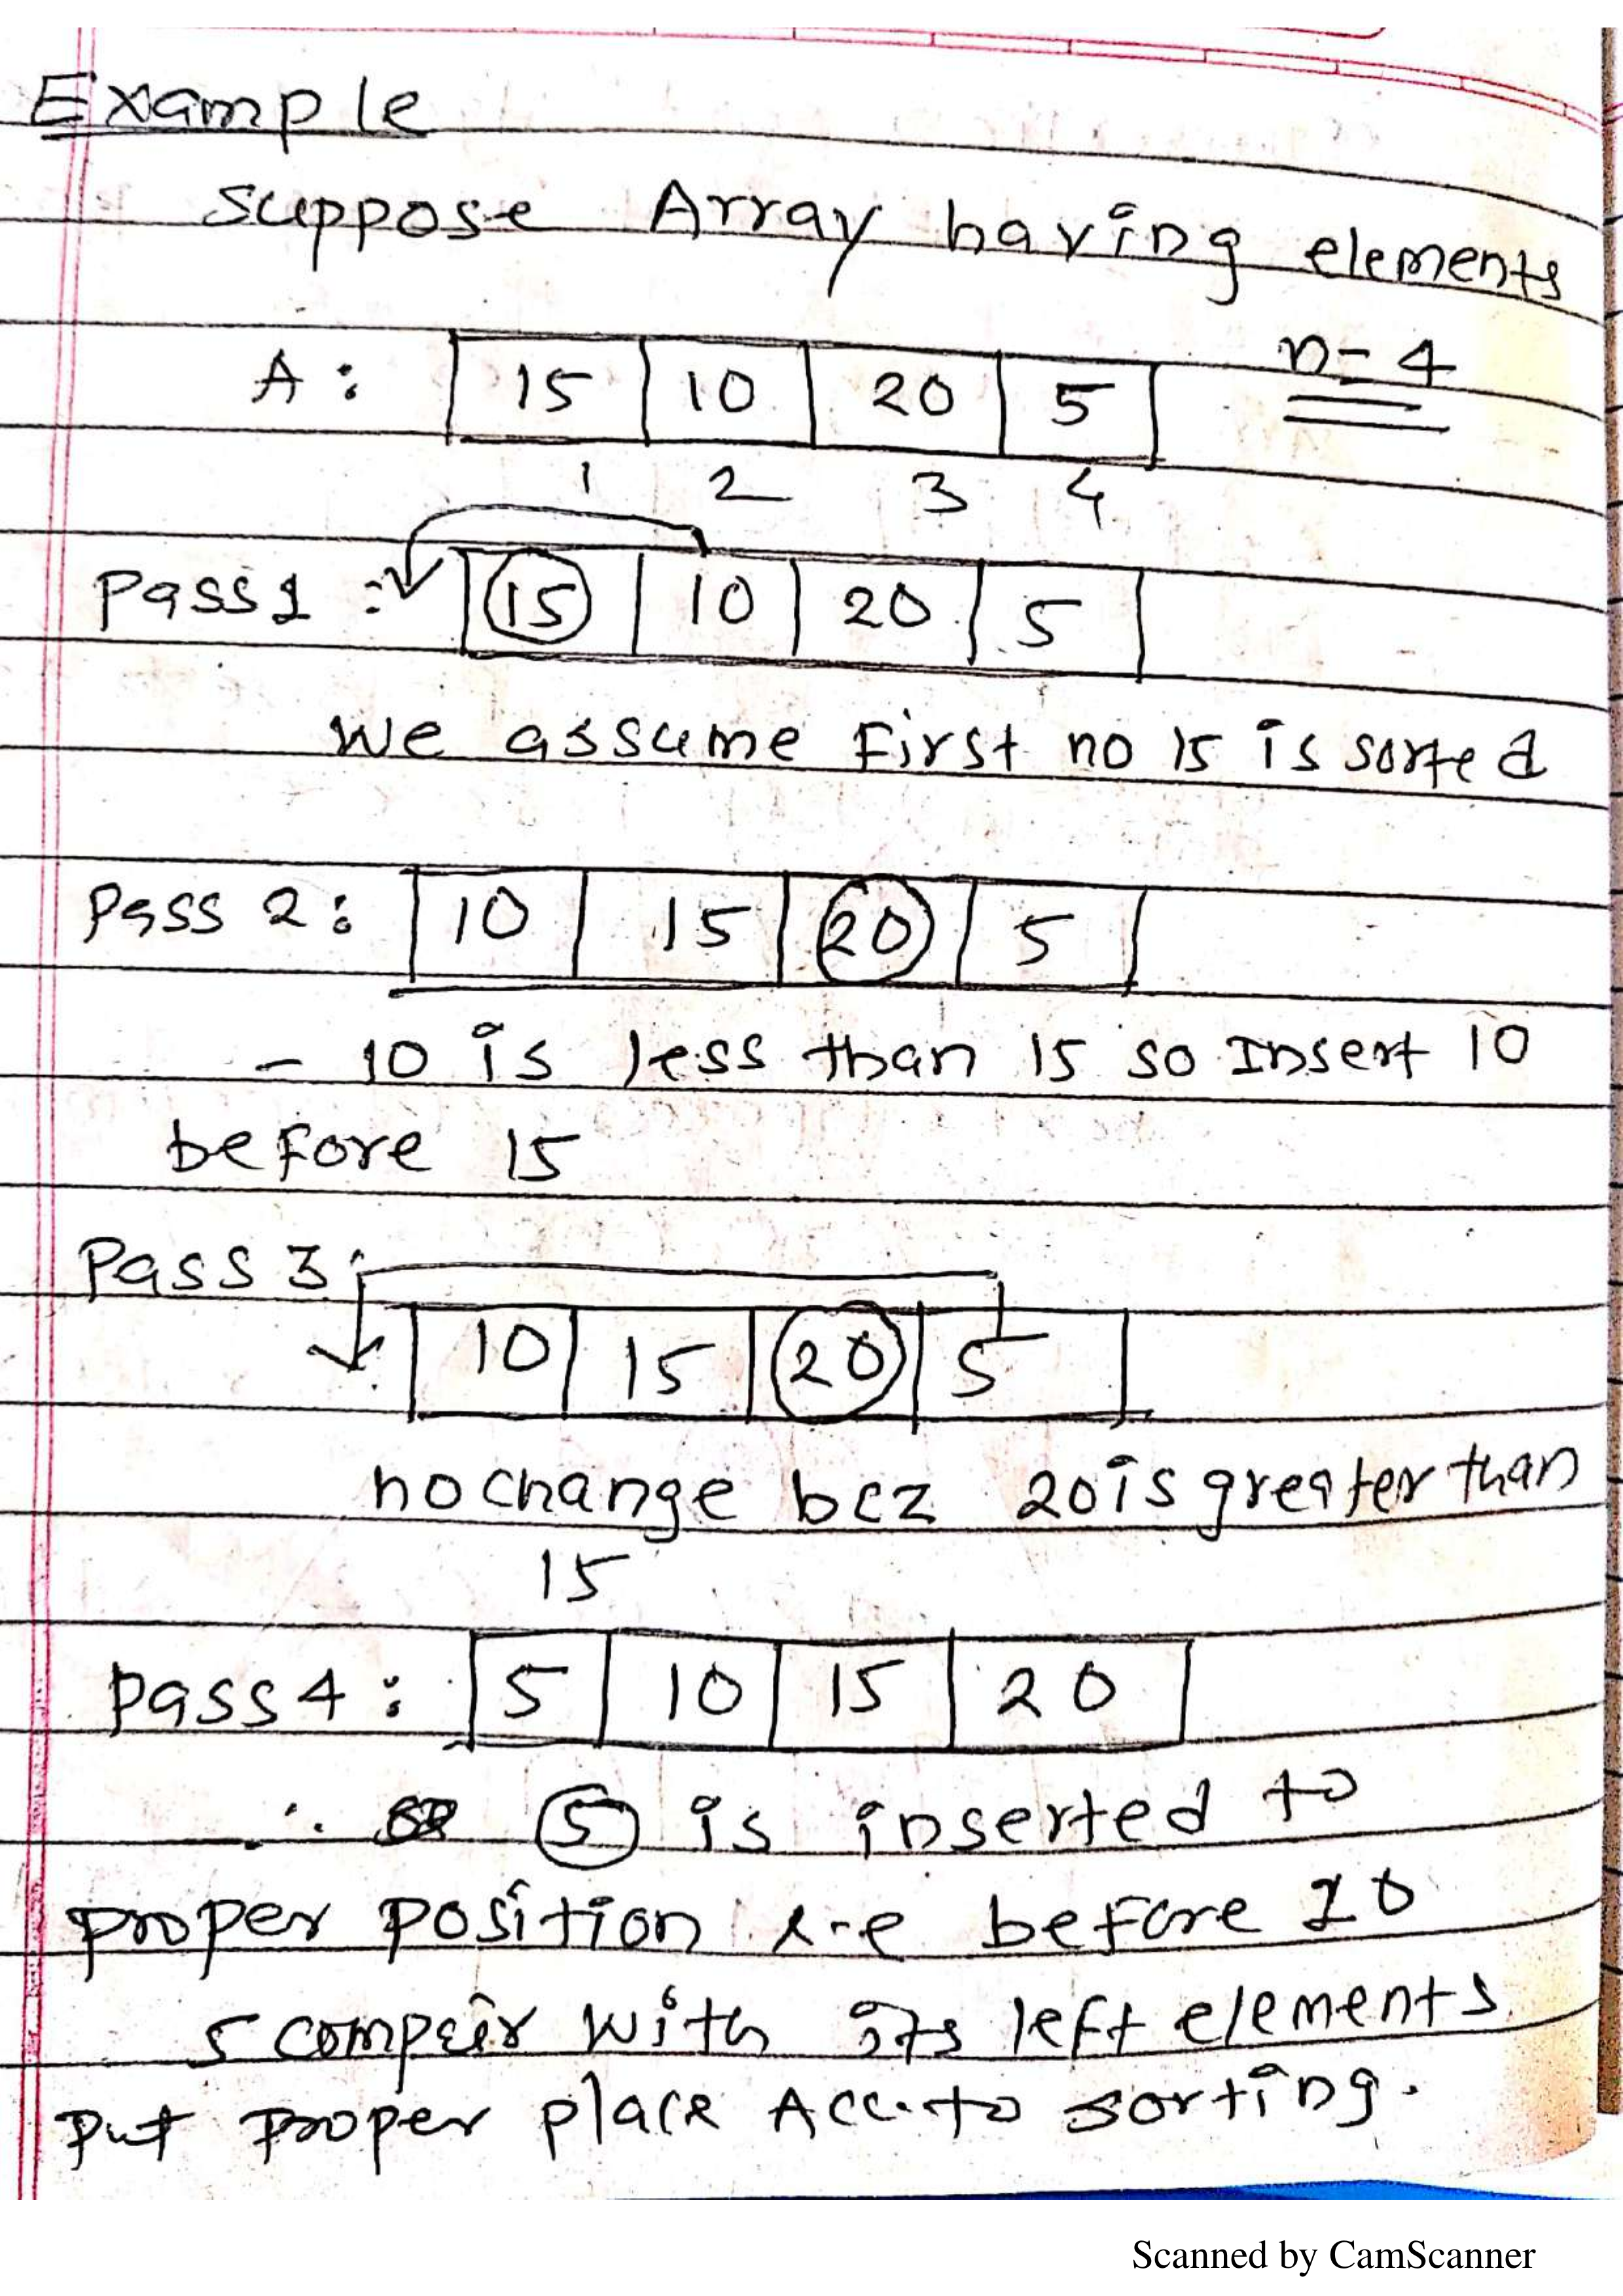 Example
suppose Array having elements
A: 15 10 20 5 n=4
1 2 3 4
Pass 1 : 15 10 20 5
We assume First no 15 is sorted
Pass 2: 10 15 20 5
- 10 is less than 15 so Insert 10
before 15
Pass 3:
10 15 20 5
no change bcz 20 is greater than
15
Pass 4: 5 10 15 20
∴ 5 is inserted to
proper position i-e before 10
5 compair with its left elements
put proper place Acc. to sorting.
Scanned by CamScanner